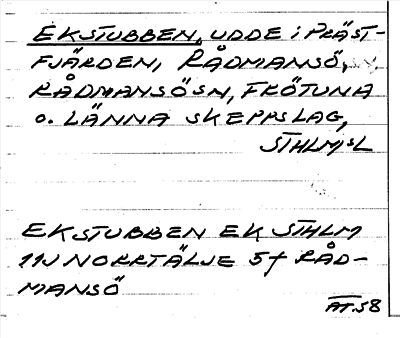 EKSTUBBEN, UDDE i PRÄST-
FJÄRDEN, RÅDMANSÖ,
RÅDMANSÖSN, FRÖTUNA
o. LÄNNA SKEPPSLAG,
STHLMSL
EKSTUBBEN EK STHLM
11J NORRTÄLJE 5f RÅD-
MANSÖ
AT.58